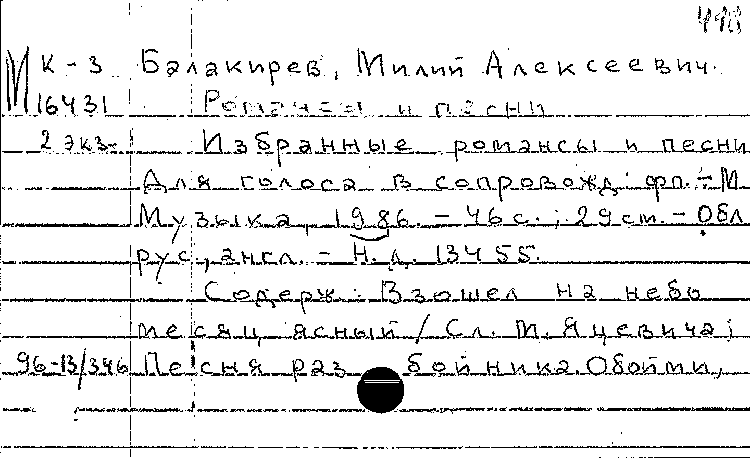 418
М К-3 Балакирев, Милий Алексеевич.
16431 Романсы и песни
2 экз. Избранные романсы и песни
Для голоса в сопровожд. фп. - М
Музыка, 1986. - 46 с.; 29 см. - Обл
рус., англ. - Н.д. 13455.
Содерж.: Взошел на небо
месяц ясный / Сл. М. Яцевича;
96-13/346 Песня разбойника. Обойми,